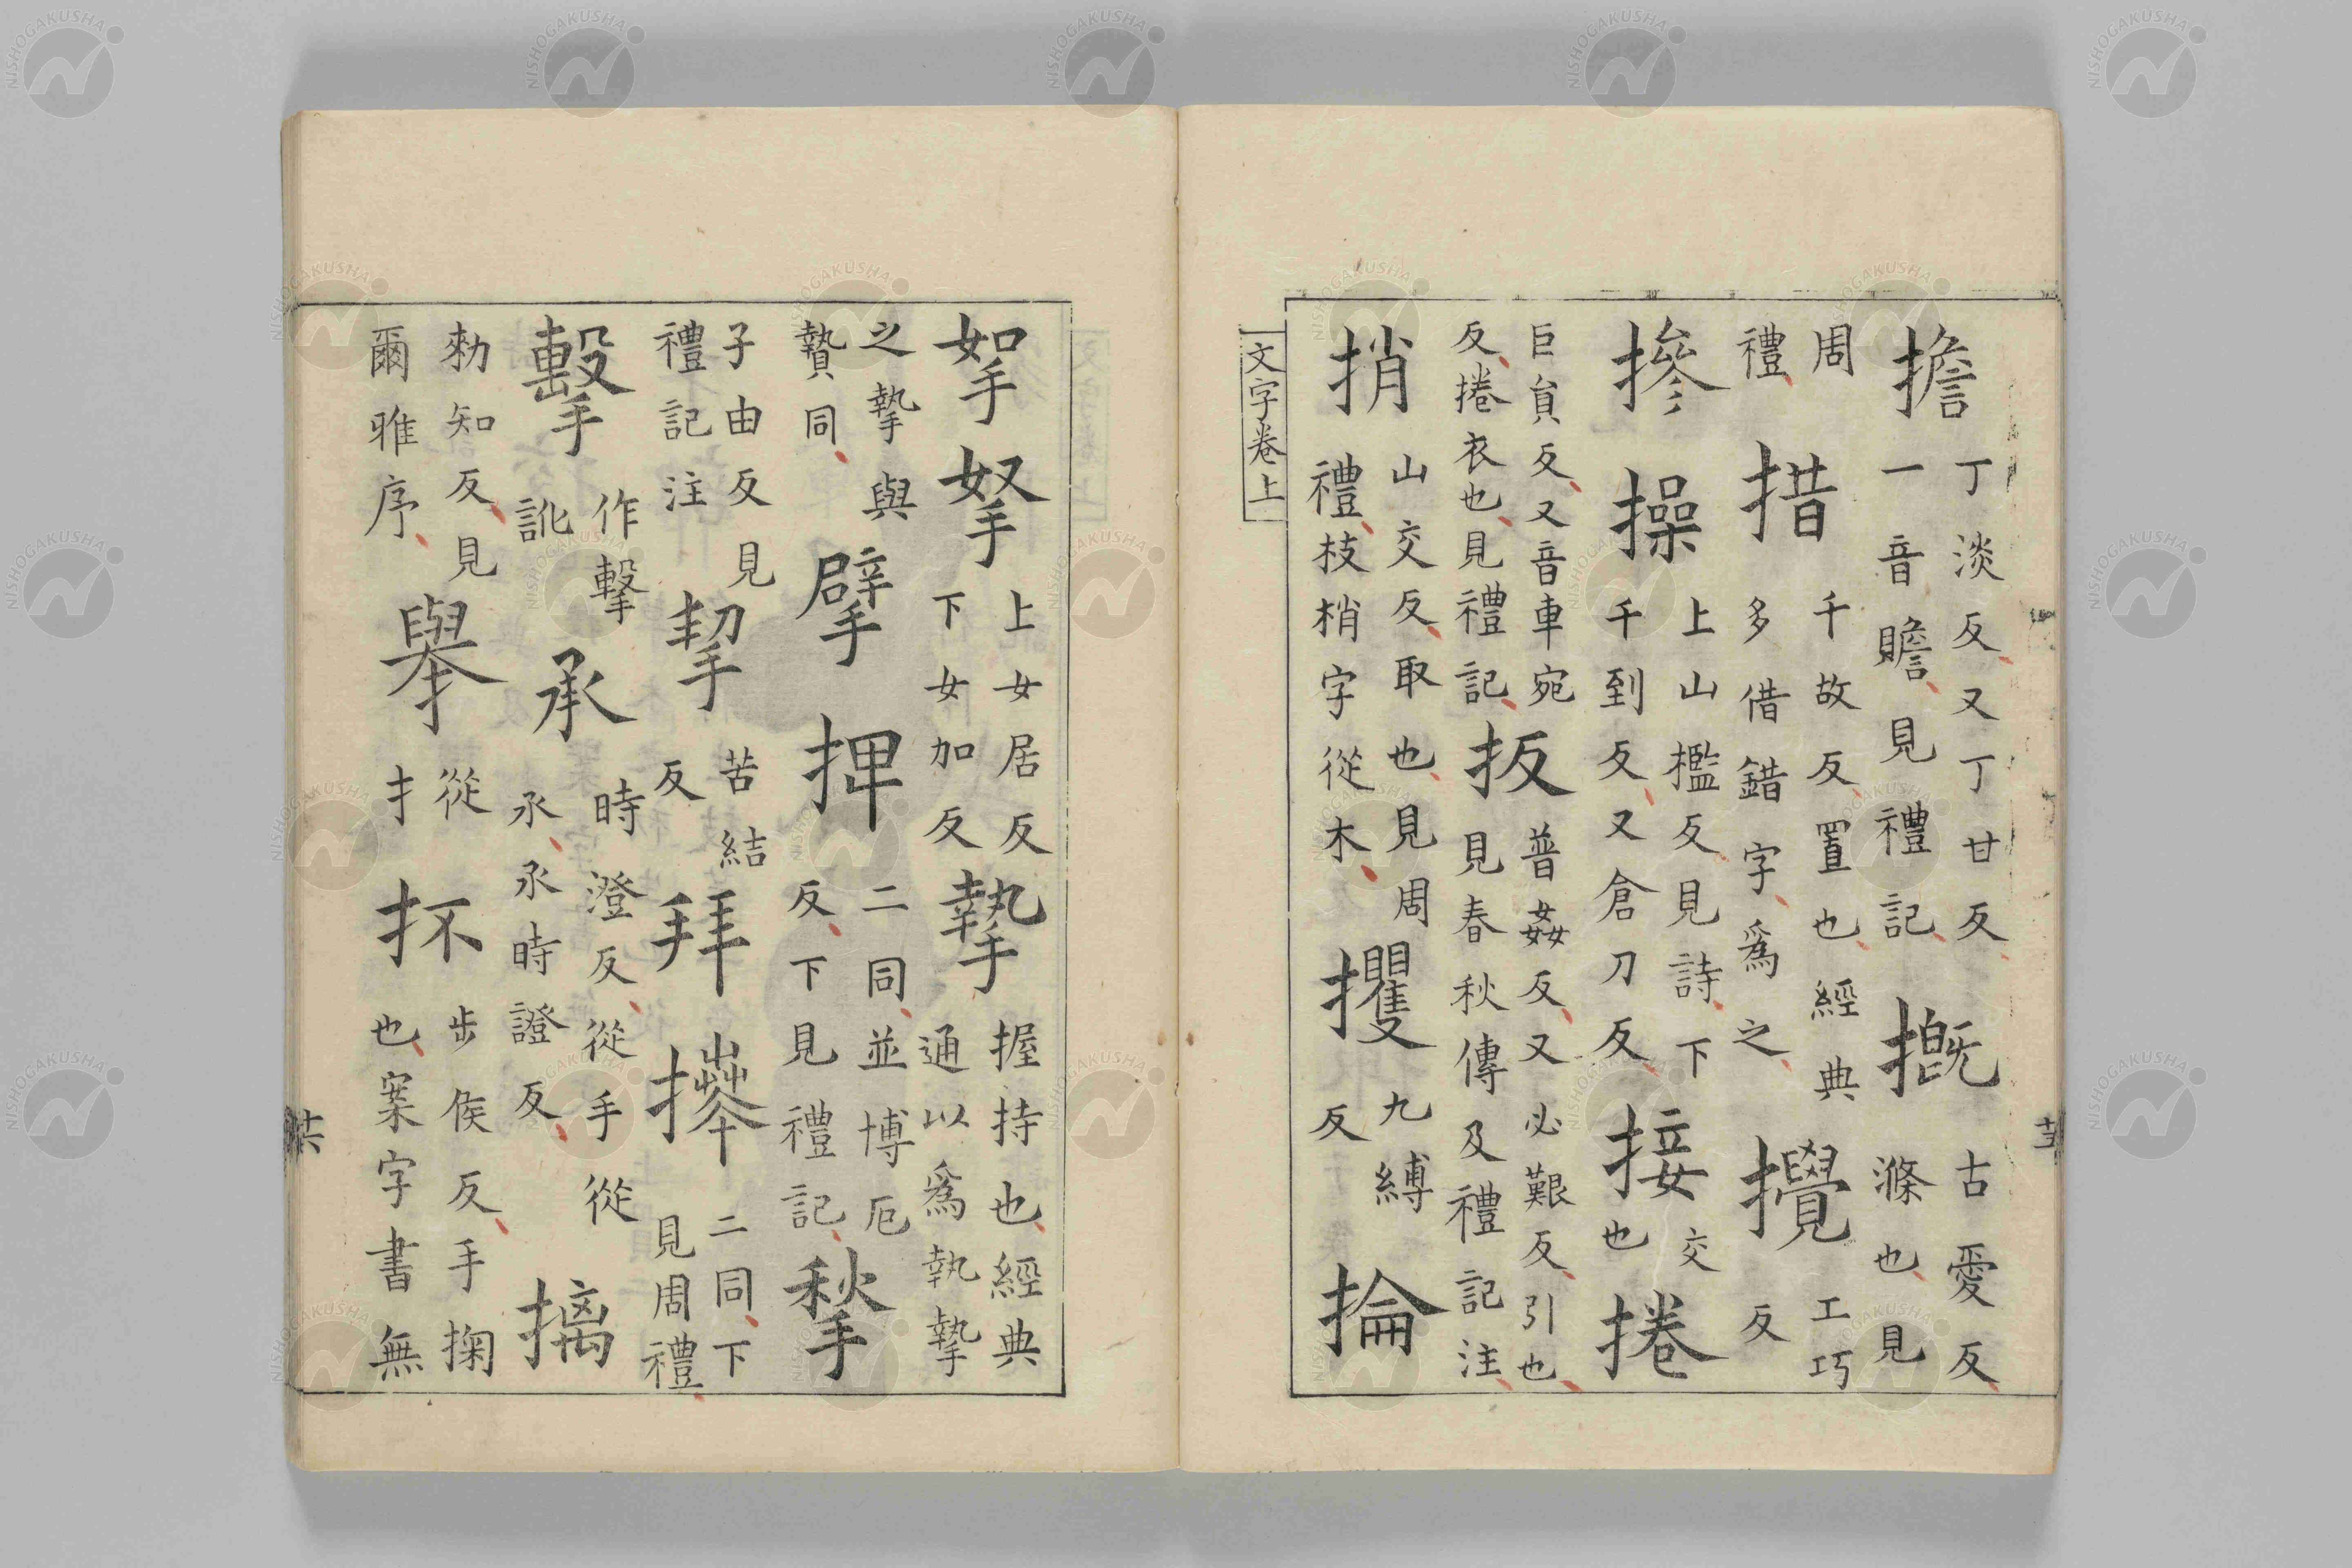 擔丁淡反又丁甘反一音贍見禮記摡古愛反滌也見
周禮措千故反置也經典多借錯字爲之攪工巧反
摻操上山檻反見詩下千到反又倉刀反接交也捲
巨貟反又音車宛反捲衣也見禮記扳普姦反又必艱反引也見春秋傳及禮記注
捎山交反取也見周禮枝梢字從木攫九縛反掄
文字卷上
挐拏上女居反下女加反摯握持也經典通以爲執摯
之摯與贄同擘捭二同並博厄反下見禮記揫
子由反見禮記注挈苦結反拜𢷎二同下見周禮
擊作撃訛承時澄反從手從氶氶時證反摛
勑知反見爾雅序舉從扌抔步侯反手掬也案字書無
十六